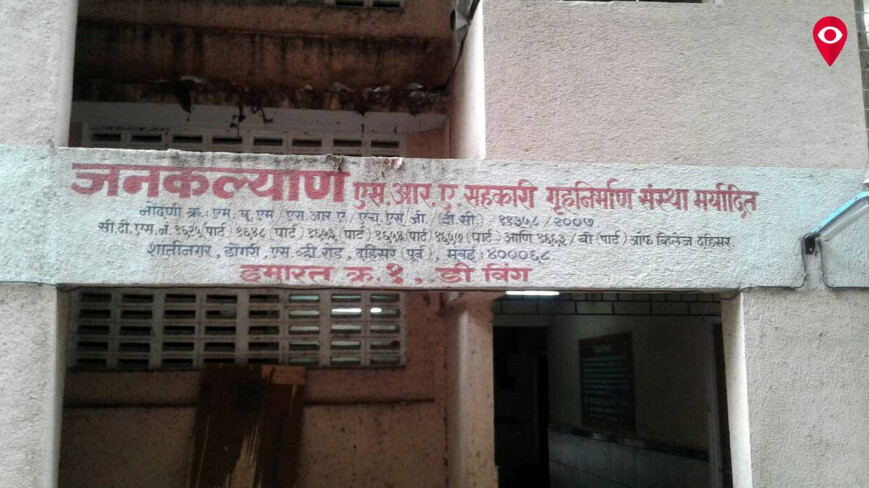 जनकल्याण एस.आर.ए.सहकारी गृहनिर्माण संस्था मर्यादित
नोंदणी क्र.: एम. यू. एम / एस.आर ए / एच.एस.जी. / (टी.सी.) ११३५८ / २००७
सी.टी.एस.नं. १६२५(पार्ट) १६४८ (पार्ट) १६५३ (पार्ट) १६५४(पार्ट) १६५७(पार्ट) आणि १६६३ / बी (पार्ट) ऑफ व्हिलेज दहिसर.
शांतीनगर, डोंगरी, एस.व्ही रोड, दहिसर (पूर्व), मुंबई: ४०००६८
इमारत क्र.१, डी विंग